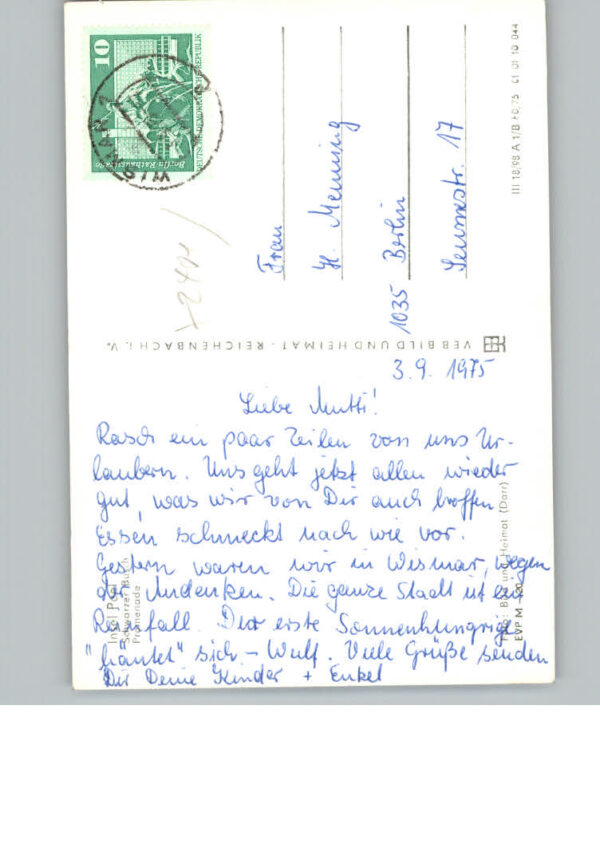 10
DEUTSCHE DEMOKRATISCHE REPUBLIK
Berlin, Rathausstraße
WISMAR 1
Frau
H. Menning
1035 Berlin
Senmestr. 17
III 18/98 A 1/B 60/75 01 01 10 044
VEB BILD UND HEIMAT · REICHENBACH i. V.
3.9. 1975
Liebe Mutti!
Rasch ein paar Zeilen von uns Ur-
laubern. Uns geht jetzt allen wieder
gut, was wir von Dir auch hoffen
Essen schmeckt nach wie vor.
Gestern waren wir in Wismar, wegen
der Andenken. Die ganze Stadt ist ein
Reinfall. Der erste Sonnenhungrige
"häutet" sich – Wulf. Viele Grüße senden
Dir Deine Kinder + Enkel
Insel Poel
Schwarzer Busch
Promenade
Foto: Bild und Heimat (Darr)
EVP M